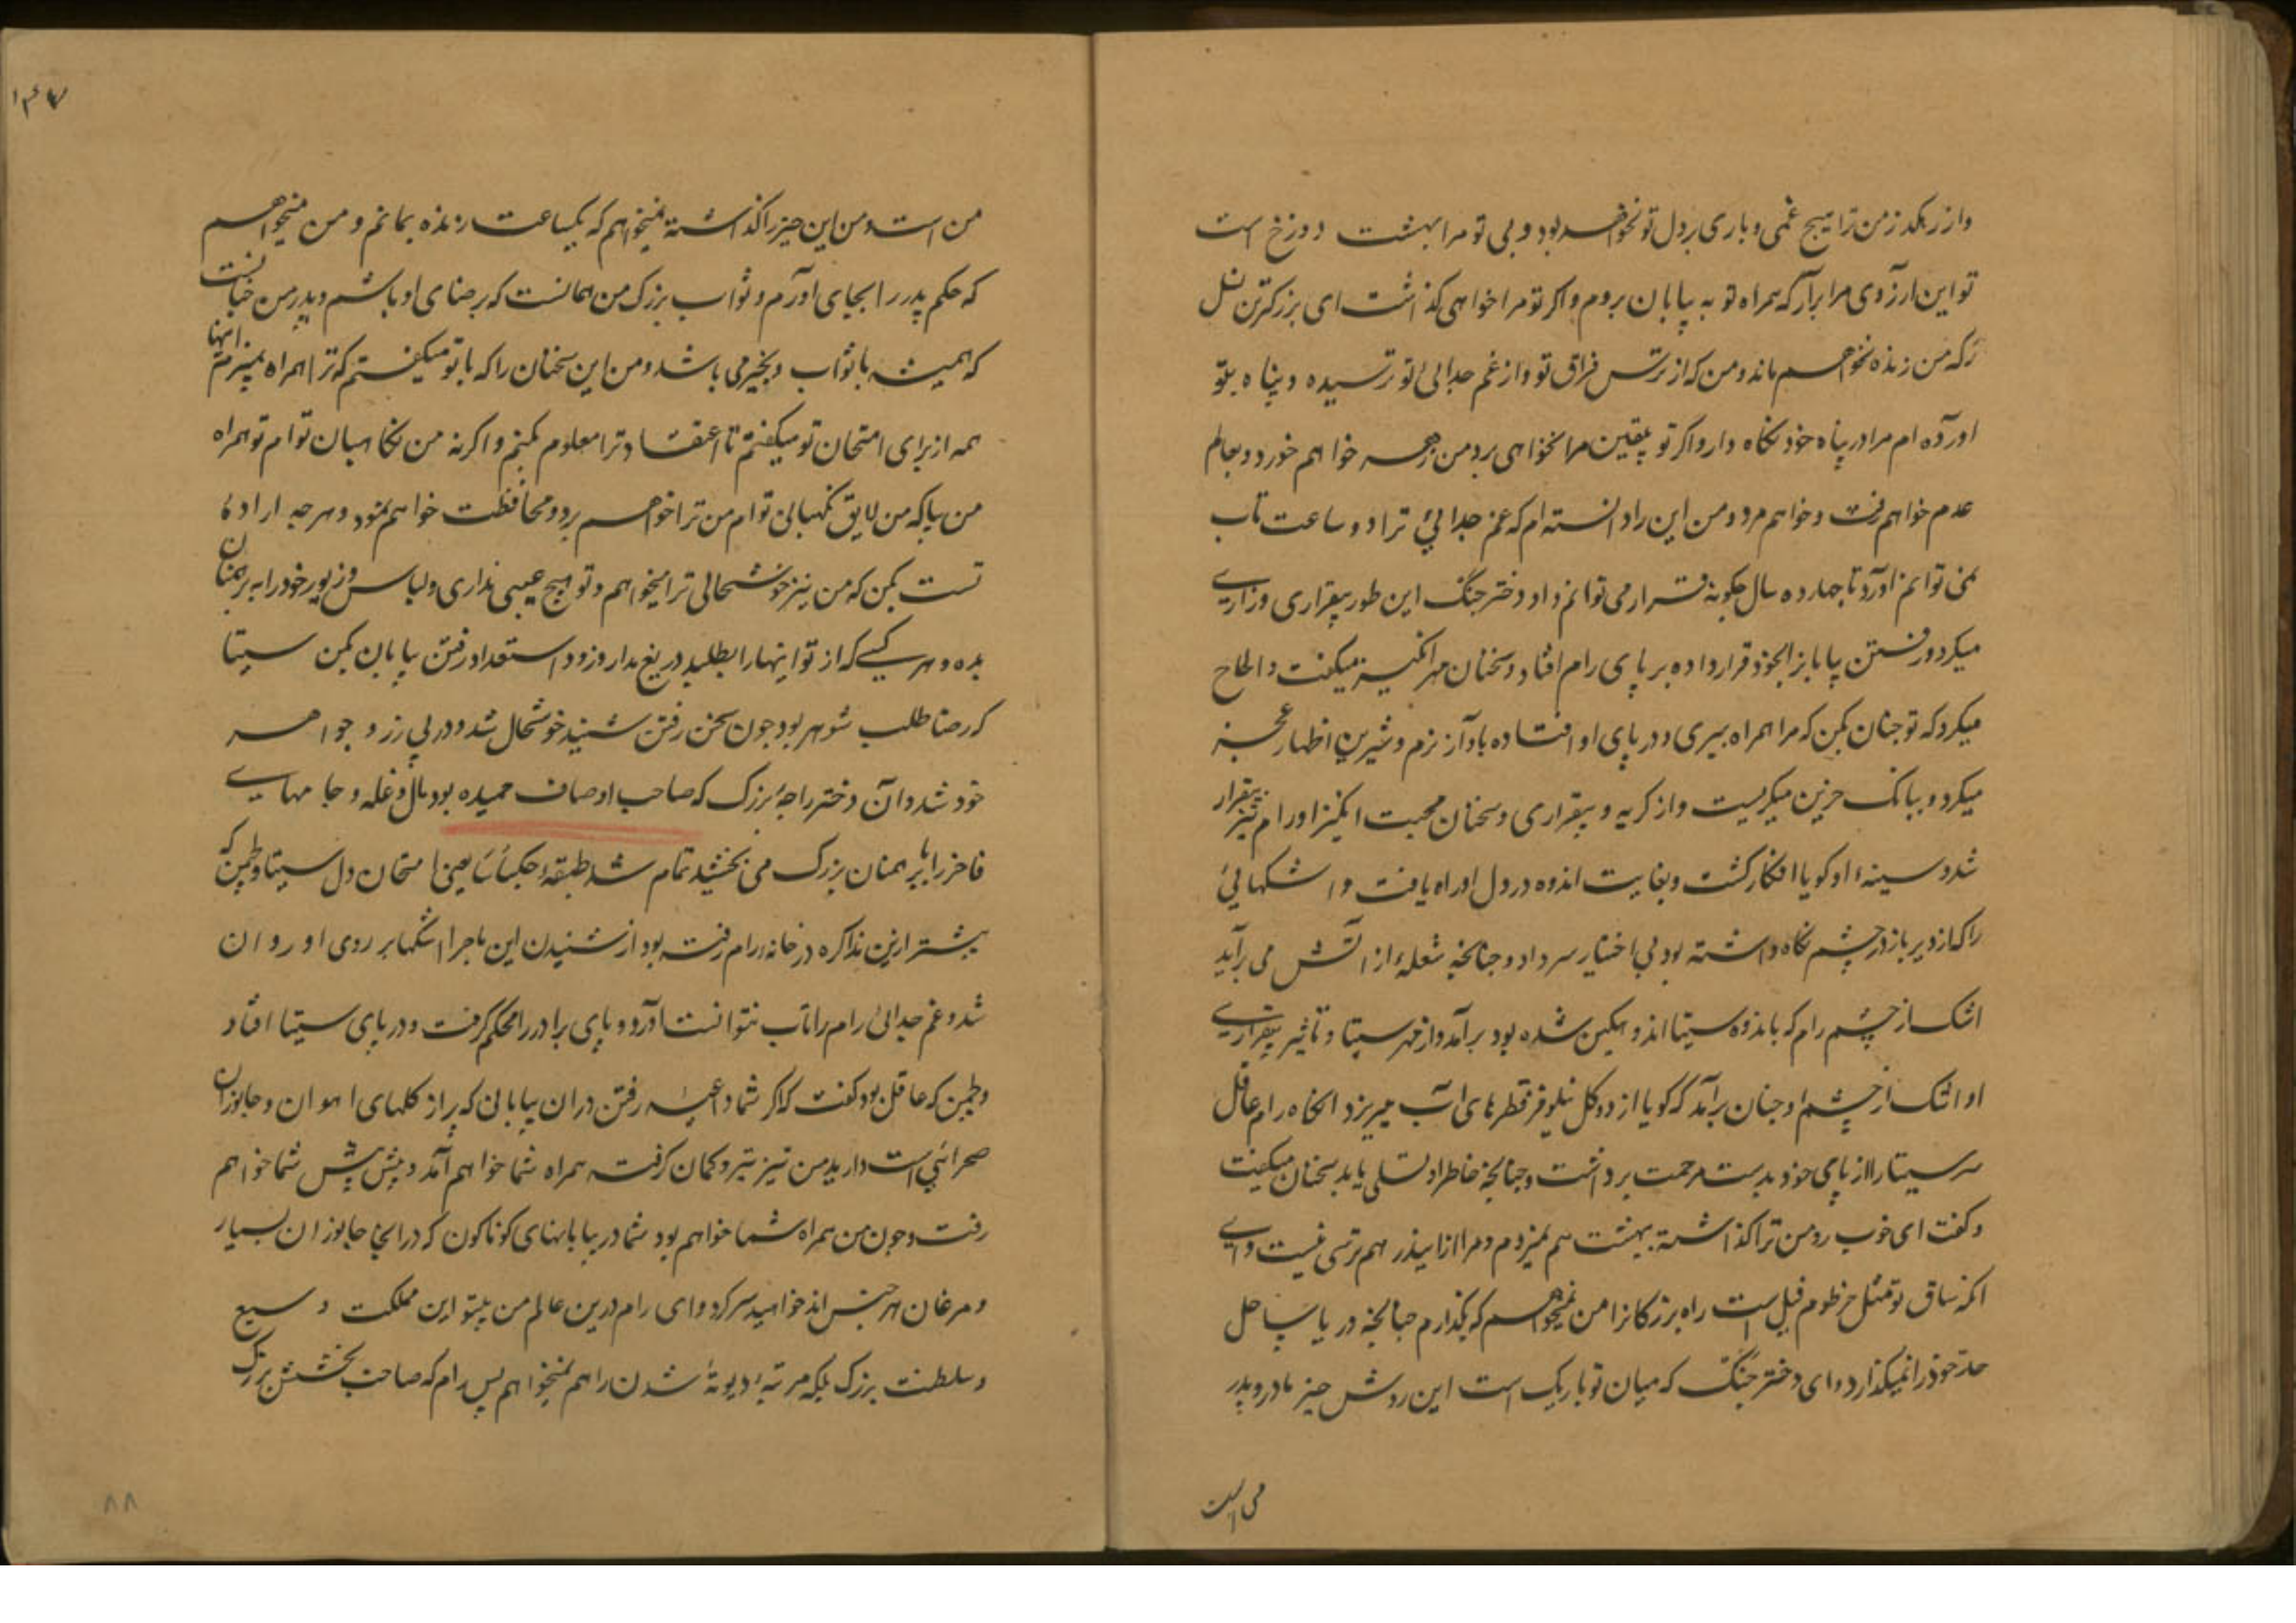 واز رهکدز من ترا هیچ غمی و باری بر دل تو نخواهد بود و بی تو مرا بهشت دوزخ است
تو این ارزوی مرا برآر که همراه تو به بیابان بروم و اکر تو مرا خواهی کذاشت ای بزرکترین نسل
رکه من زنده نخواهم ماند و من که از ترس فراق تو و از غم جدائی تو ترسیده و پناه بتو
آورده ام مرا در پناه خود نکاه دار و اکر تو یقین مرا نخواهی برد من زهر خواهم خورد و بعالم
عدم خواهم رفت و خواهم مرد و من این را دانسته ام که غم جدائی ترا دو ساعت تاب
نمی توانم آورد تا چهارده سال چکونه قرار می توانم داد دختر جنک این طور بیقراری و زاری
میکرد و رفتن بیابانرا بخود قرار داده بر پای رام افتاد و سخنان مهر انکیز میکفت و الحاح
میکرد که تو چنان بکن که مرا همراه ببری و در پای او افتاده بآواز نرم و شیرین اظهار عجز
میکرد و ببانک حزین میکریست و از کریه و بیقراری و سخنان محبت انکیز او رام نیز بیقرار
شد و سینهٔ او کویا افکار کشت و بغایت اندوه در دل او راه یافت و اشکهائی
را که از دیر باز در چشم نکاه داشته بود بی اختیار سر داد و چنانچه شعله از آتش می برآید
اشک از چشم رام که باندوه سیتا اندوهکین شده بود برآمد و از مهر سیتا و تاثیر بیقراری
او اشک از چشم او چنان برآمد که کویا از دو کل نیلوفر قطرهای آب میریزد انکاه رام عاقل
سر سیتا را از پای خود بدست مرحمت برداشت و چنانچه خاطر او تسلی یابد سخنان میکفت
و کفت ای خوب رو من ترا کذاشته بهشت هم نمیروم و مرا ازا بیذر هم ترسی نیست و ای
انکه ساق تو مثل خرطوم فیل است راه بزرکانرا من نمیخواهم که بکذارم چنانچه دریا ساحل
حد خود را نمیکذارد و ای دختر جنک که میان تو باریک است این روش چیز مادر و پدر
من است
۱۴۷
من است و من این چیز را کذاشته نمیخواهم که یکساعت زنده بمانم و من میخواهم
که حکم پدر را بجای آورم و ثواب بزرک من همانست که برضای او باشم و پدر من چنانست
که همیشه با ثواب و بخیر می باشد و من این سخنان را که با تو میکفتم که ترا همراه نمیبرم اینها
همه از برای امتحان تو میکفتم تا اعتقاد ترا معلوم کنم و اکر نه من نکاهبان توام تو همراه
من بیا که من لایق نکهبانی توام من ترا خواهم برد و محافظت خواهم نمود و هر چه ارادهٔ
تست بکن که من نیز خوشحالی ترا میخواهم و تو هیچ عیبی نداری و لباس و زیور خود را به برهمنان
بده و هر کسی که از تو اینها را بطلبد دریغ مدار و زود استعداد رفتن بیابان بکن سیتا
که رضا طلب شوهر بود چون سخن رفتن شنید خوشحال شد و در پی زر و جواهر
خود شد و آن دختر راجهٔ بزرک که صاحب اوصاف حمیده بود مال و غله و جامهای
فاخر را به برهمنان بزرک می بخشید تمام شد طبقهٔ جکیاسا یعنی امتحان دل سیتا و لچمن که
پیشتر ازین مذاکره در خانهٔ رام رفته بود از شنیدن این ماجرا اشکها بر روی او روان
شد و غم جدائی رام را تاب نتوانست آورد و پای برادر را محکم کرفت و در پای سیتا افتاد
و لچمن که عاقل بود کفت که اکر شما داعیه رفتن دران بیابانی که پر از کلهای آهوان و جانوران
صحرائی است دارید من نیز تیر و کمان کرفته همراه شما خواهم آمد و پیش پیش شما خواهم
رفت و چون من همراه شما خواهم بود شما در بیابانهای کوناکون که در انجا جانوران بسیار
و مرغان هر جنس اند خواهید سر کرد و ای رام درین عالم من بیتو این مملکت وسیع
و سلطنت بزرک بلکه مرتبهٔ دیوته شدن را هم نمیخواهم پس رام که صاحب بخشش بزرک
۸۸